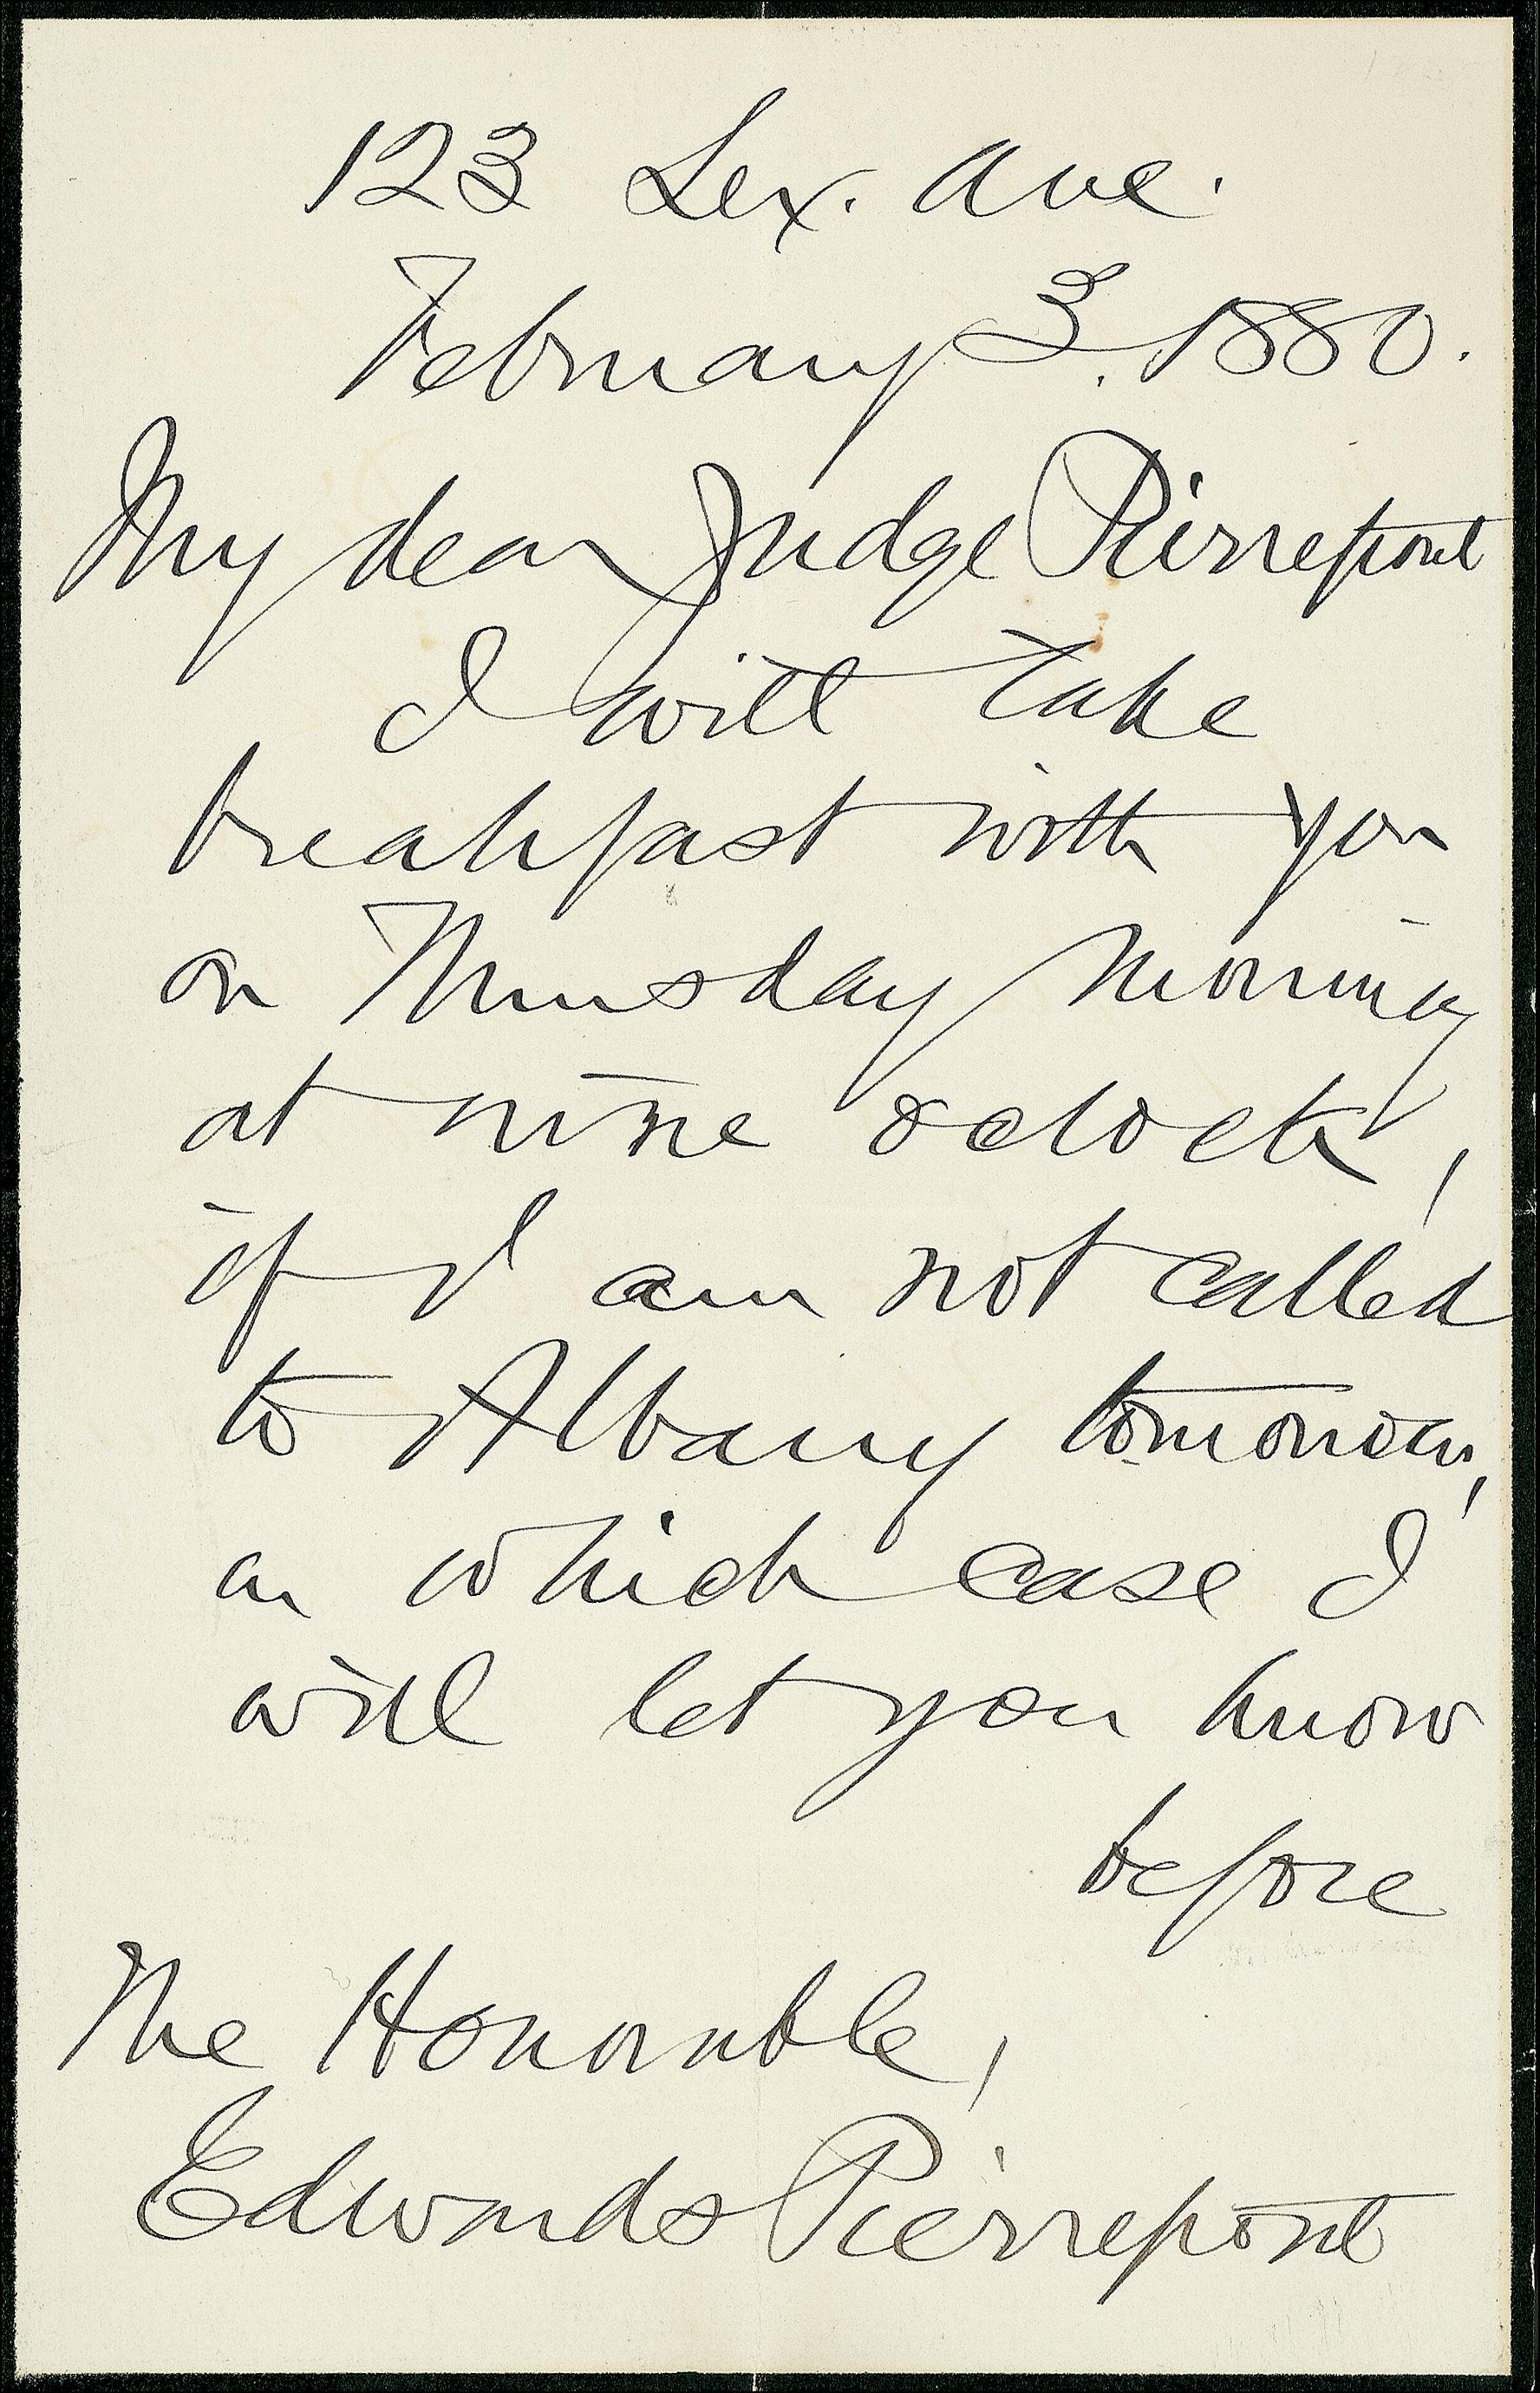 123 Lex. Ave.
February 3, 1880.
My dear Judge Pierrepont
I will take
breakfast with you
on Thursday morning
at nine oclock,
if I am not called
to Albany tomorrow,
in which case I
will let you know
before
The Honorable,
Edwards Pierrepont